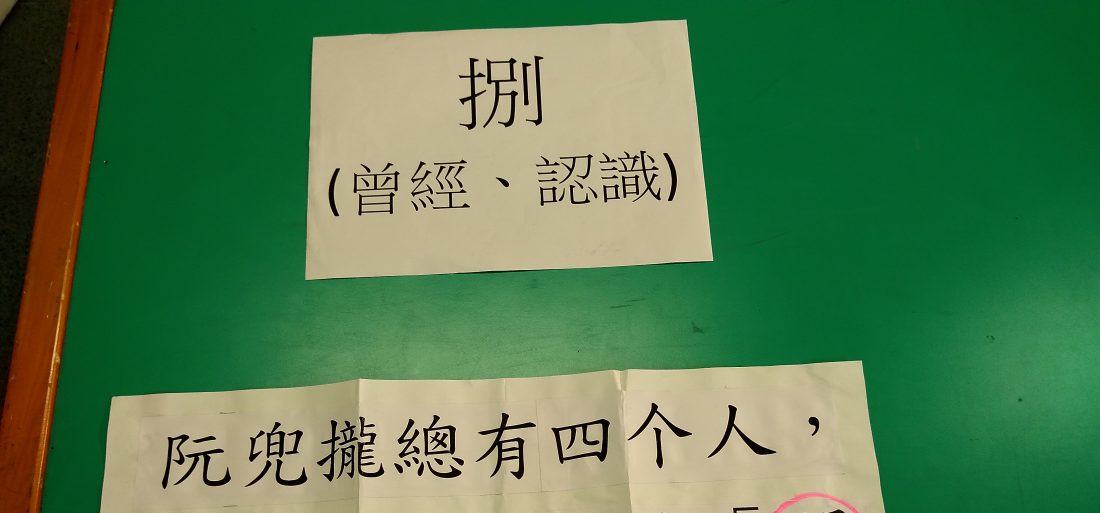 捌
(曾經、認識)
阮兜攏總有四个人，